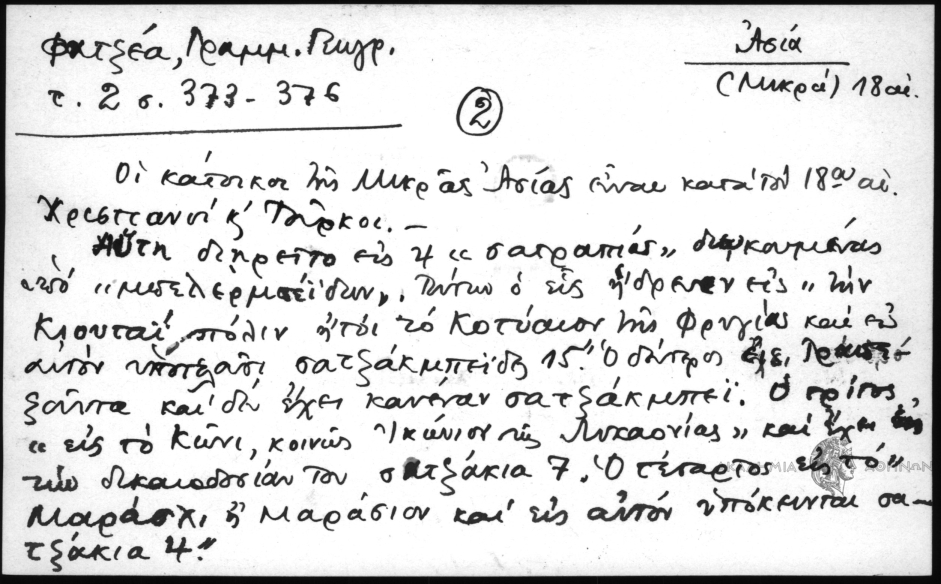 Φατζέα, Γραμμ. Γεωγρ.
τ. 2 σ. 373-376
Ἀσία
(Μικρά) 18 αἰ.
2
Οἱ κάτοικοι τῆς Μικρᾶς Ἀσίας εἶναι κατά τόν 18ον αἰ.
Χριστιανοί κ' Τοῦρκοι. –
Αὕτη διῃρεῖτο εἰς 4 «σατραπίας» διοικουμένας
ἀπό «μπεϊλερμπέϊδων». Τούτων ὁ εἷς ἥδρευεν εἰς "τήν
Κιουταϊ πόλιν ἤτοι τό Κοτύαιον τῆς Φρυγίας καί εἰς
αὐτόν ὑποτελᾶσι σατζάκμπεϊδες 15. Ὁ δεύτερος ἔχει
ξοῦντα καί δέν ἔχει κανέναν σατζάκμπεϊ. Ὁ τρίτος,
«εἰς τό Κώνι, κοινῶς Ἰκόνιον τῆς Λυκαονίας» καί ἔχει ὑπό
τήν δικαιοδοσίαν του σατζάκια 7. Ὁ τέταρτος εἰς τό "
Μαράσχι ἤ Μαράσιον καί εἰς αὐτόν ὑπόκεινται σα-
τζάκια 4."
ΑΚΑΔΗΜΙΑ ΑΘΗΝΩΝ